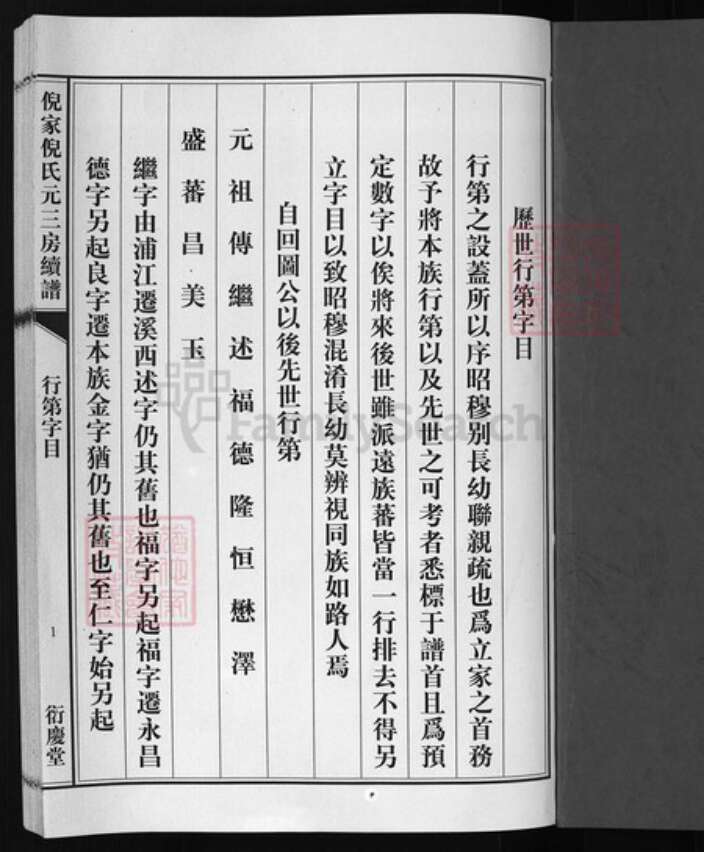 歷世行第字目
行第之設蓋所以序昭穆别長幼聯親疏也爲立家之首務
故予將本族行第以及先世之可考者悉標于譜首且爲預
定數字以俟將來後世雖派遠族蕃皆當一行排去不得另
立字目以致昭穆混淆長幼莫辨視同族如路人焉
自回圖公以後先世行第
元祖傳繼述福德隆恒懋澤
盛蕃昌美玉
繼字由浦江遷溪西述字仍其舊也福字另起福字遷永昌
德字另起良字遷本族金字猶仍其舊也至仁字始另起
倪家倪氏元三房續譜
行第字目
1
衍慶堂
FamilySearch